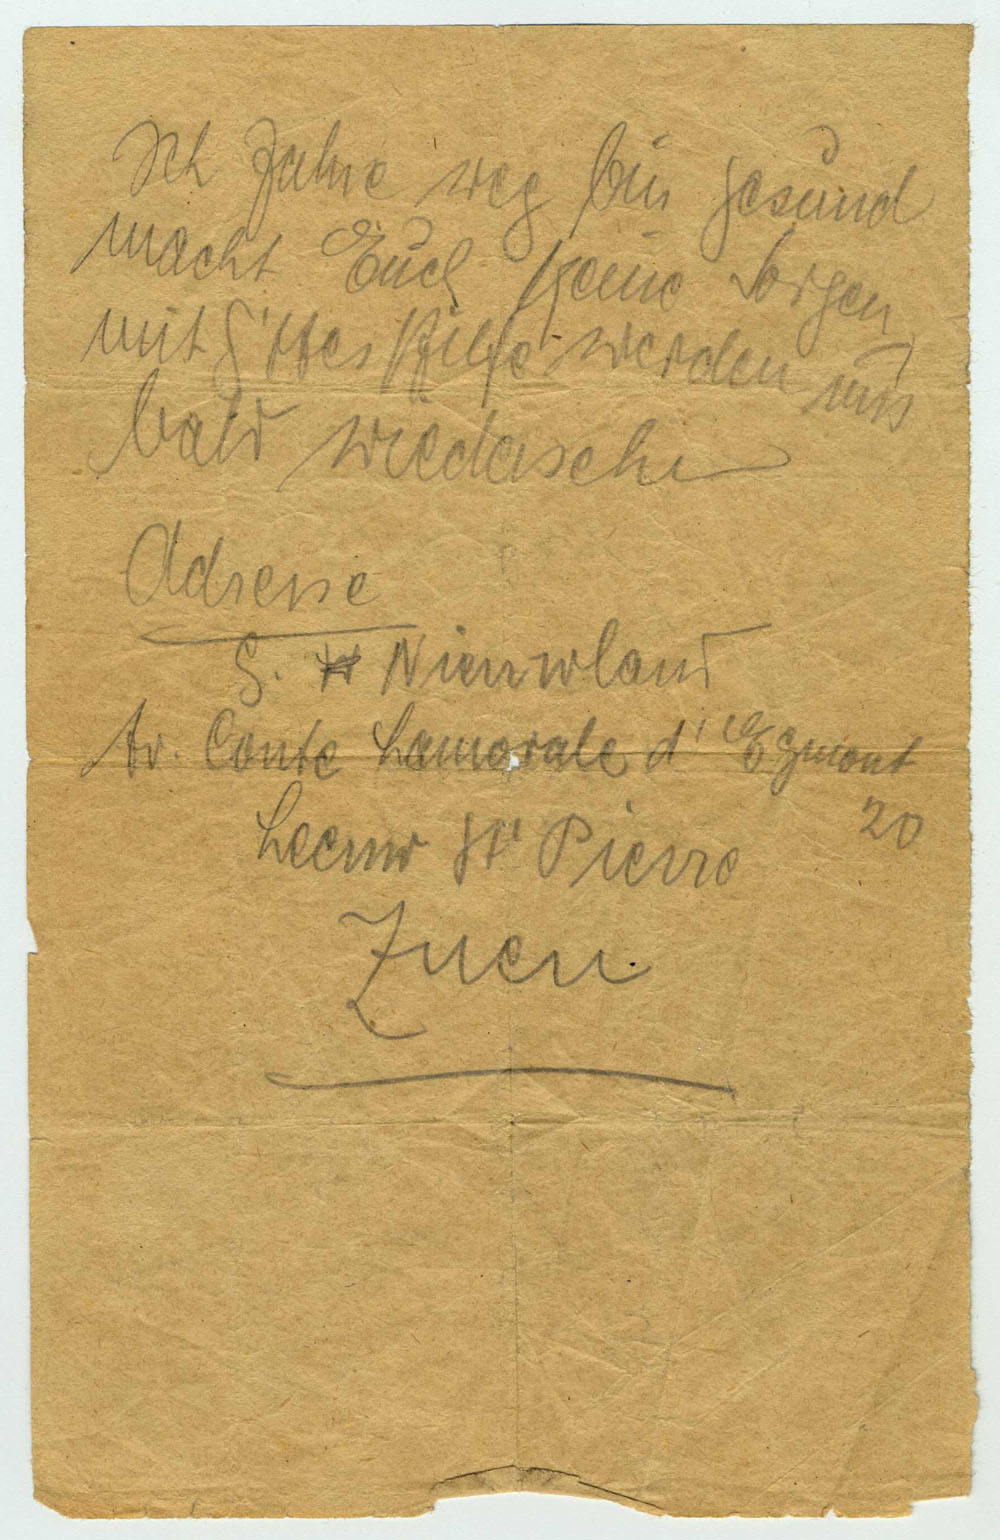 Ich Fahre weg bin gesund
macht Euch Keine Sorgen
mit G'ttes Hilfe werden uns
bald wiedersehn
Adresse
S. Nieuwland
Av. Conte Lamorale d' Egmont
20
Leeuw St Pierre
Zuen